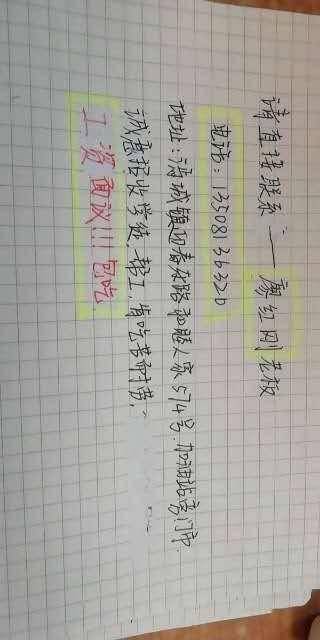 请直接联系——廖红刚老板
电话:13508136320
地址:清城镇迎春东路和睦人家574号.加油站旁门市.
诚意招收学徒.帮工.肯吃苦耐劳.
工资面议!!!包吃.